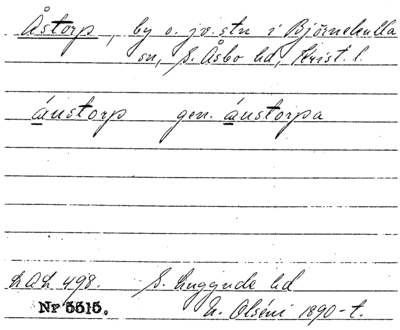 Åstorp, by o. jv.stn i Björnekulla
sn, S. Åsbo hd, Krist. l.
áustorp gen. áustorpa
LAL 498. S. Luggude hd
Nr 5515. N. Olséni 1890-t.